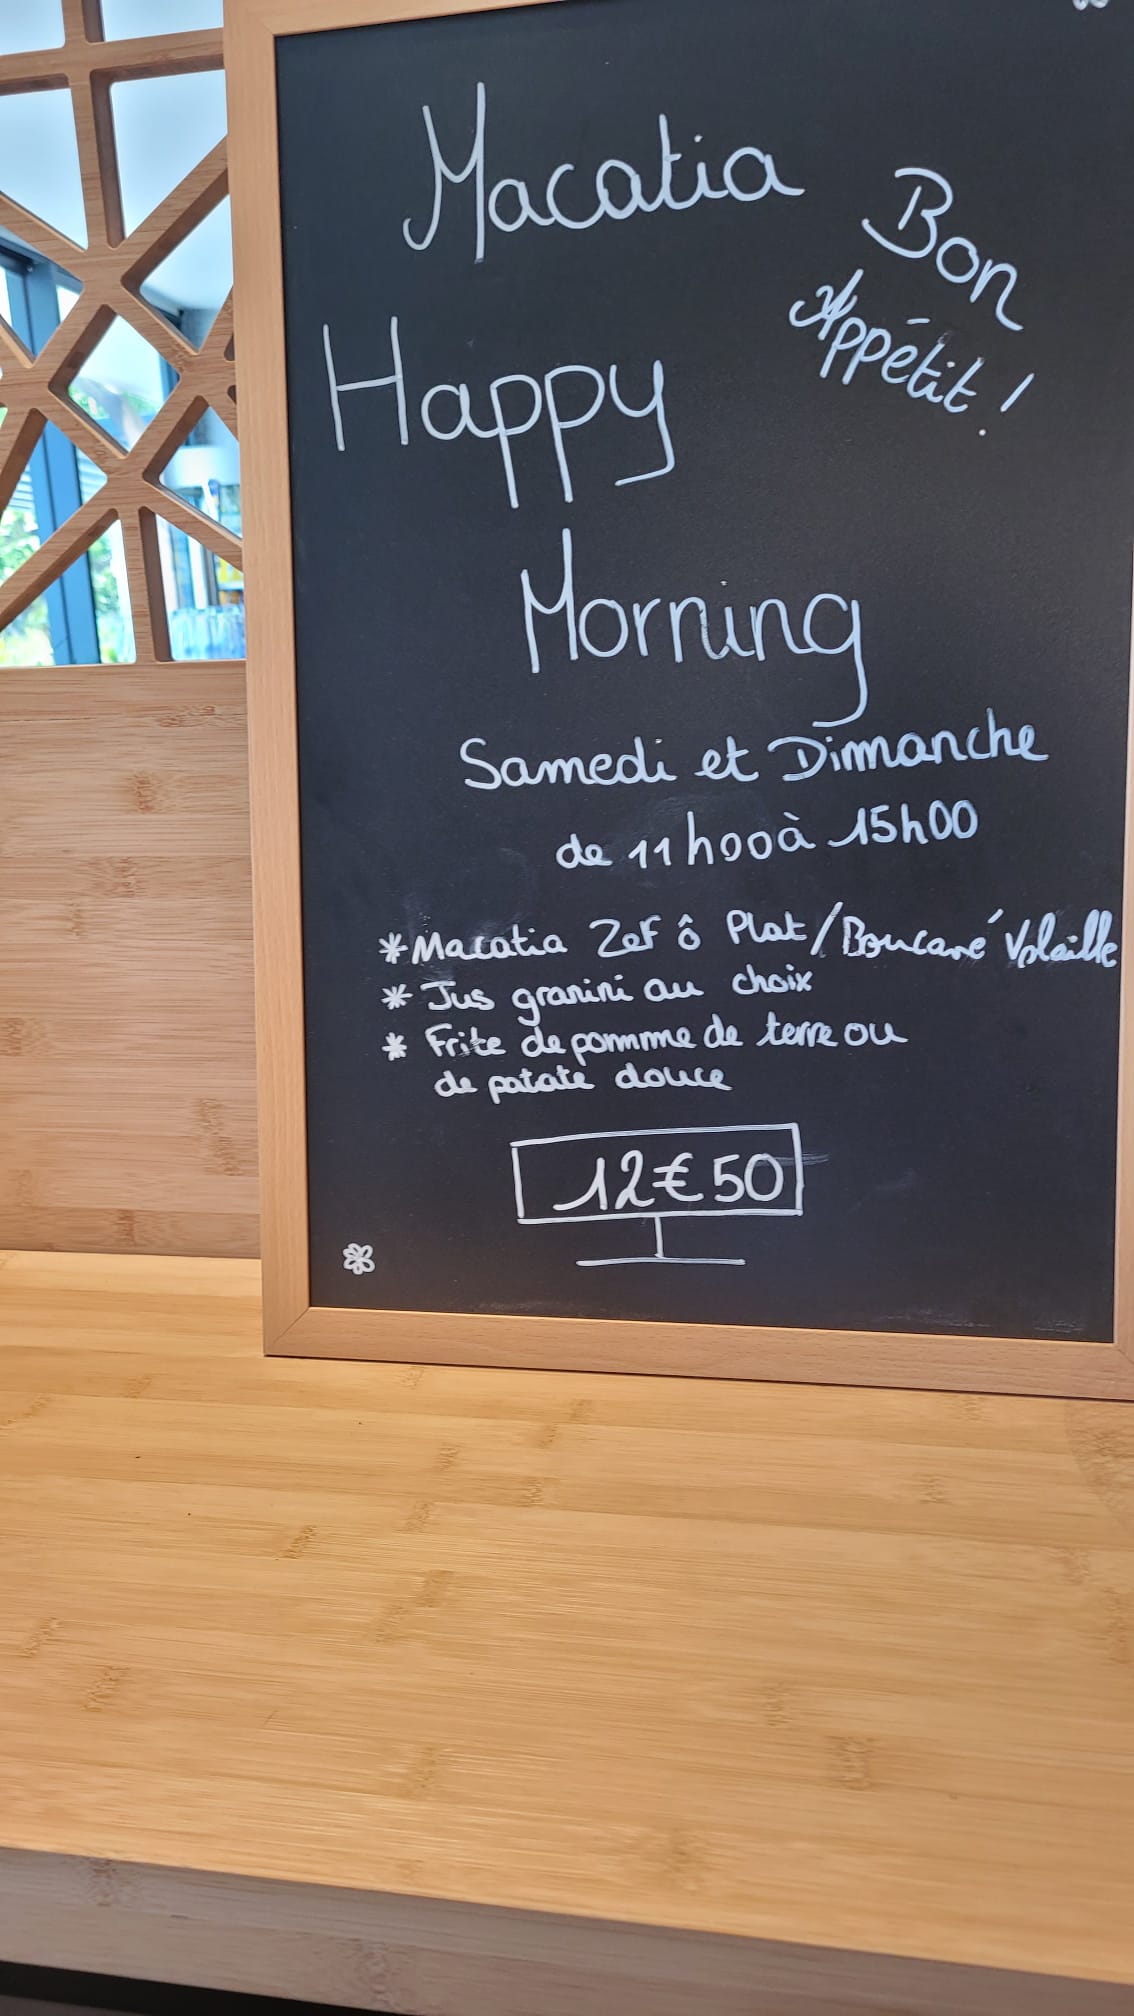 Macatia
Bon
Appétit !
Happy
Morning
Samedi et Dimanche
de 11h00 à 15h00
* Macatia Zef ô Plat / Boucané Volaille
* Jus granini au choix
* Frite de pomme de terre ou
de patate douce
12€50